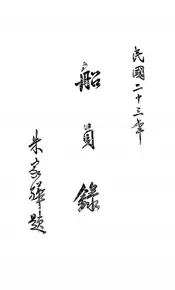 民國二十三年
船員錄
朱家驊題